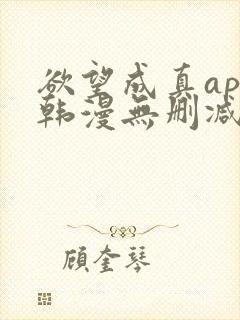 欲望成真ap
韩漫無删减
顾奎琴